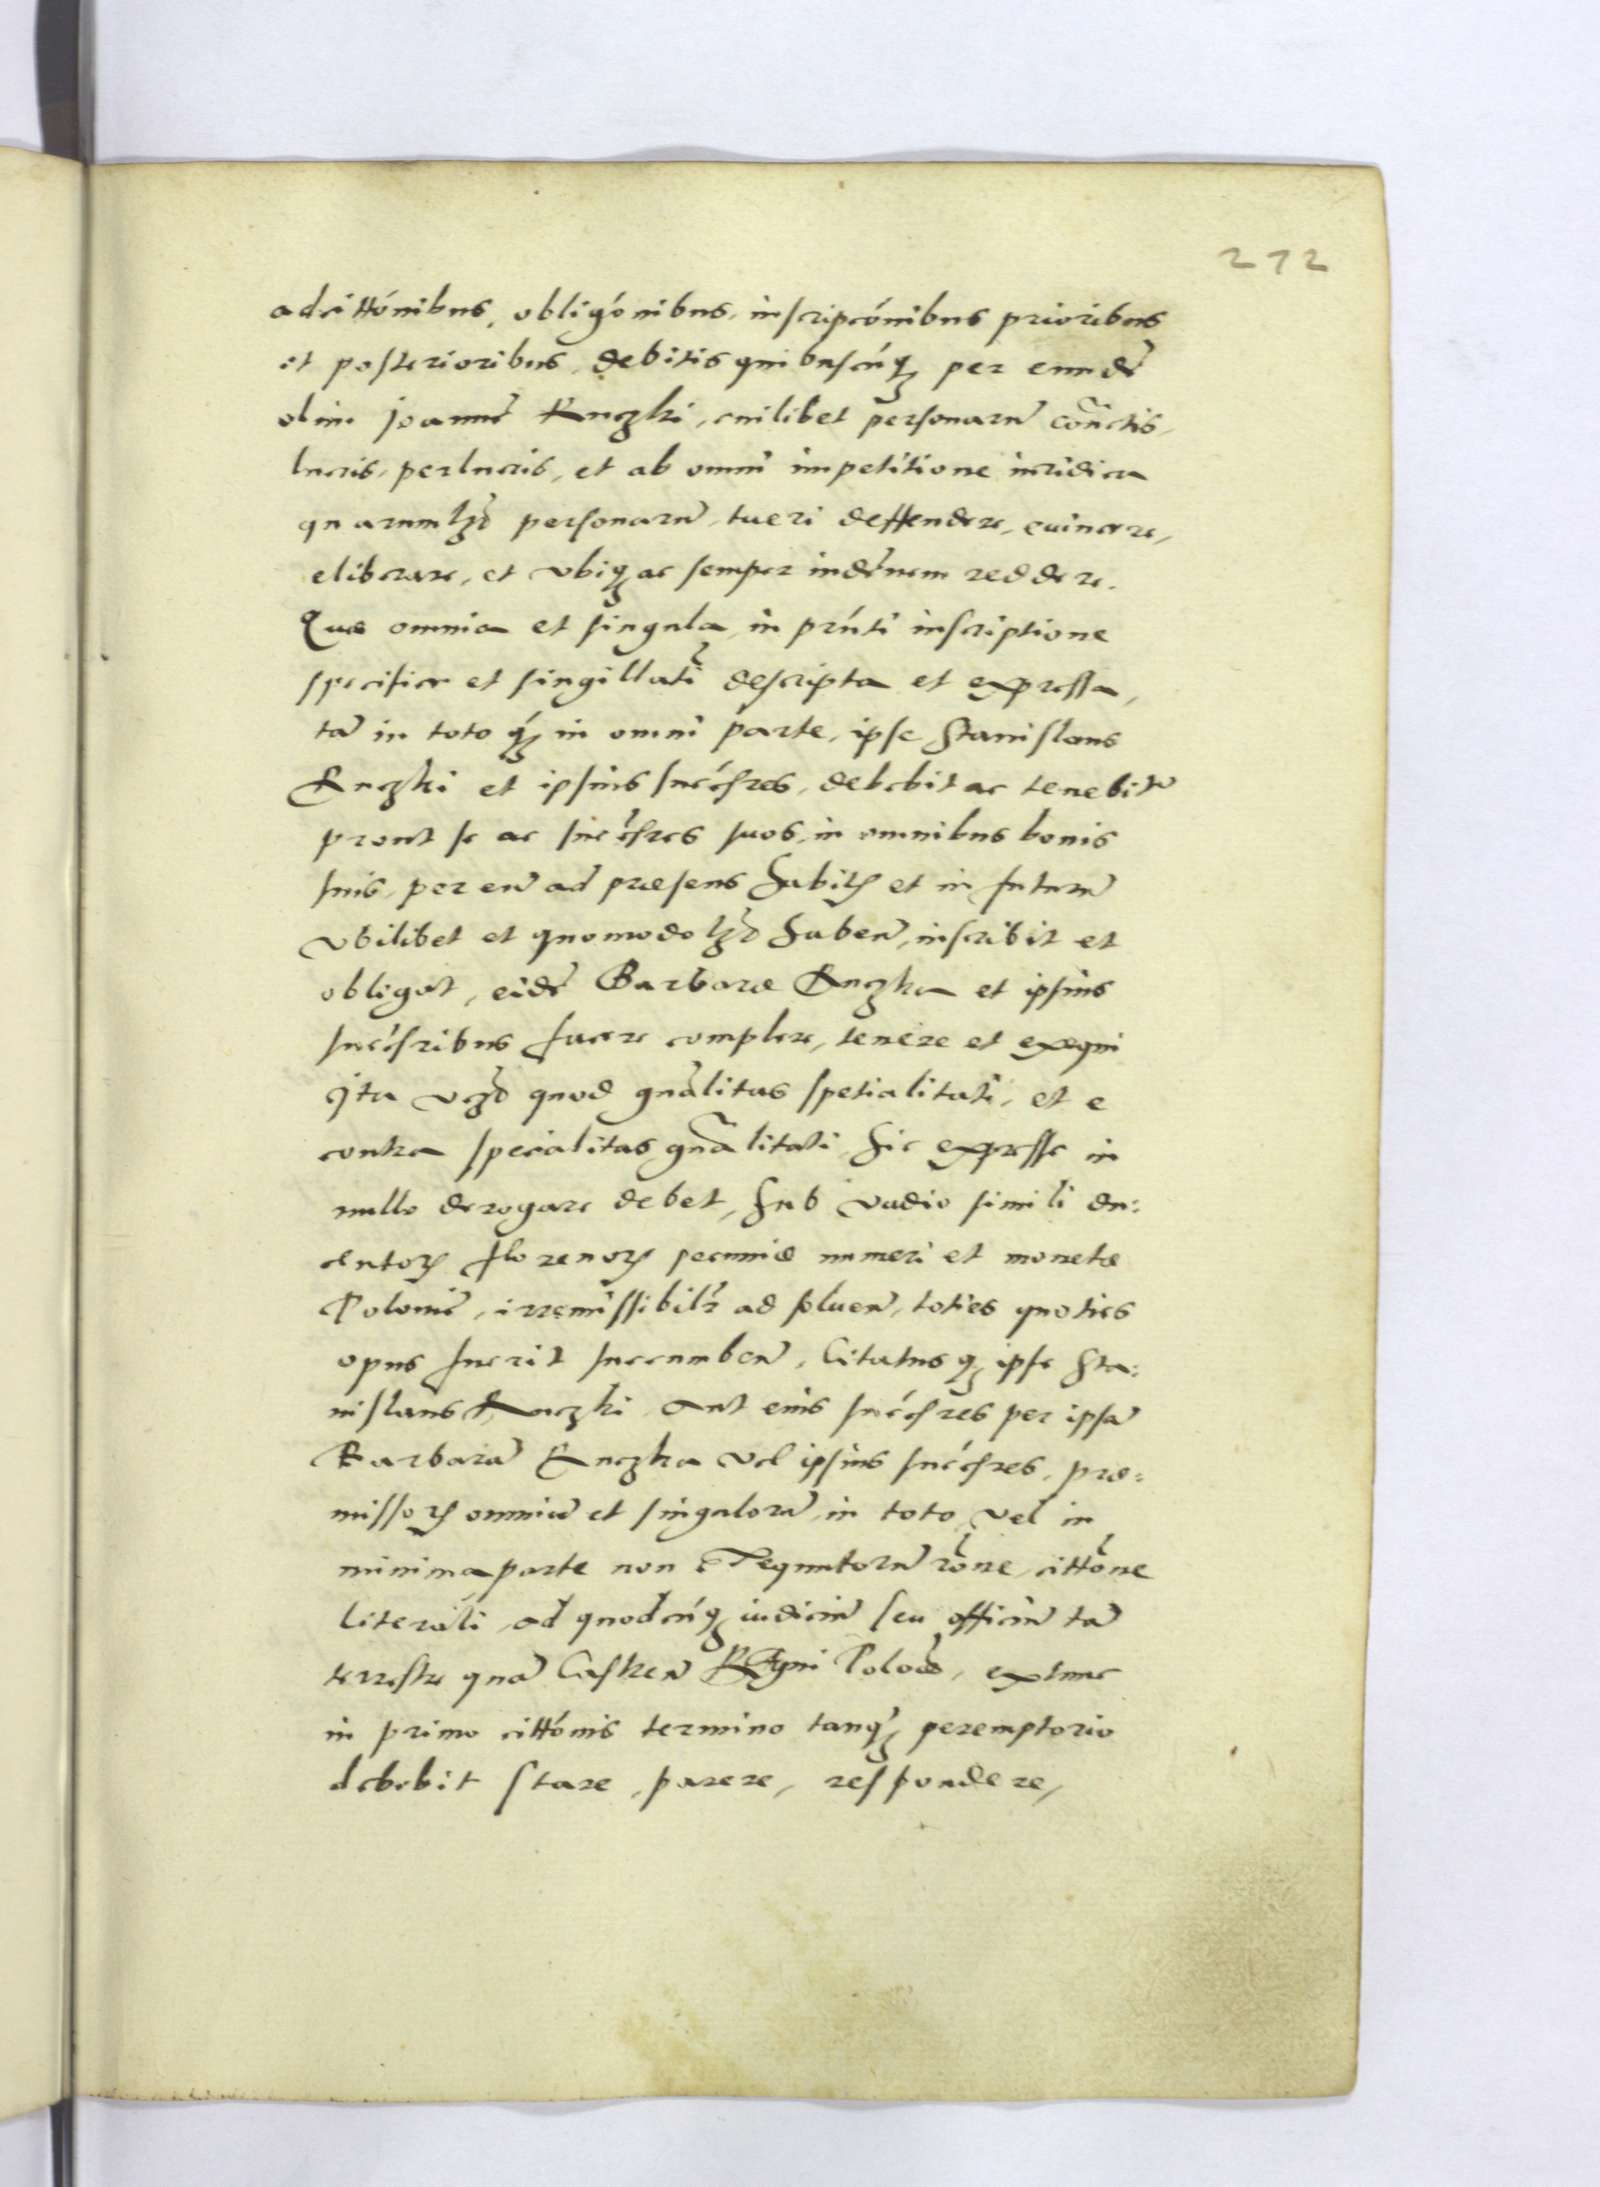 272
adcittónibus, obligónibus, inscripcónibus prioribus
et posterioribus, debitis quibuscúq₃ per eundē
olim Joannē Ruczki, cuilibet personarū contractis,
lucris, perlucris, et ab omni impetitione iuridica
quarumlꝫ personarū, tueri deffendere, euincere,
eliberare, et vbiqꝫ ac semper indēnem reddere.
Quæ omnia et singula in prńti inscriptione
specifice et singillatī descripta et expressa,
tā in toto qꝫ in omni parte, ipse Stanislaus
Ruczki et ipsius succéssres, debebit ac tenebitʳ
prout se ac succéssres suos, in omnibus bonis
suis, per eū ad præsens habitꝭ et in futurū
vbilibet et quomodolꝫ haben̄, inscribit et
obligat, eidē Barbaræ Ruczka et ipsius
succéssribus facere complere, tenere et exequi
Ita vꝫ quod gnālitas spetialitati, et e
contra specialitas gnālitati, hic expresse in
nullo derogare debet, Sub vadio simili du:
centorꝫ florenorꝫ pecuniæ numeri et monetæ
Poloniē, irremissibilr̄ ad soluen̄, toties quoties
opus fuerit succumben̄, Citatusqꝫ ipse Sta:
nislaus Ruczki aut eius succéssres per ipsā
Barbarā Ruczka vel ipsius succéssres, præ:
missorꝫ omniū et singulorū in toto vel in
minima parte non exequutorū rōne, cittōne
literali, ad quodcúqꝫ iudiciū seu officiū tā
terrestre quā Castren̄ Regni Poloniæ, extunc
in primo cittónis termino tanqꝫ peremptorio
debebit stare, parere, respondere,